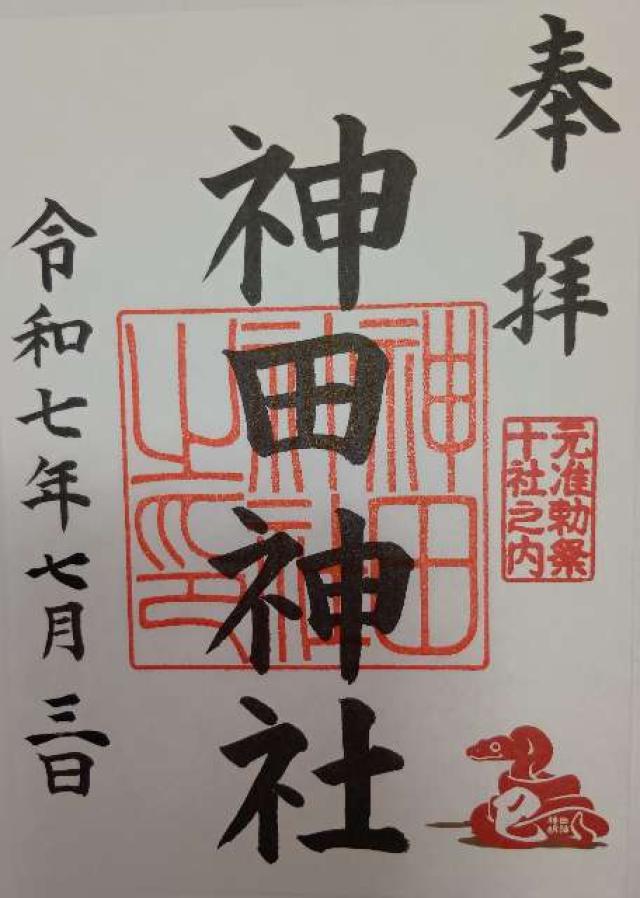 奉拝
元准勅祭
十社之内
神田神社
神田
神社
之印
巳
令和七年七月三日